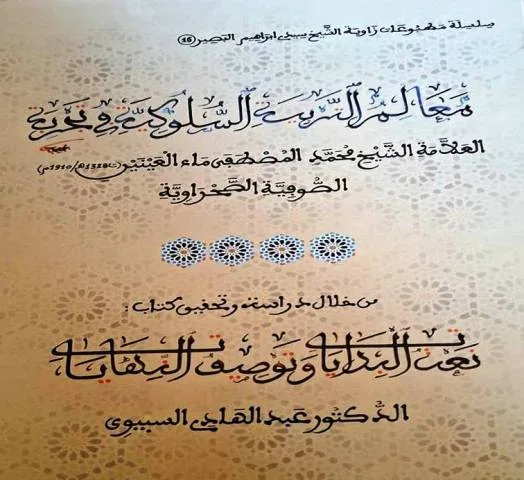 سلسلة مطبوعات زاوية الشيخ سيدي ابراهيم البصير (16)
معالم التربية السلوكية في تجربة
العلامة الشيخ محمد المصطفى ماء العينين (ت1328هـ/1910م)
الصوفية الصحراوية
من خلال دراسة وتحقيق كتاب:
نعت البدايات وتوصيف النهايات
الدكتور عبد الهادي السبيوي